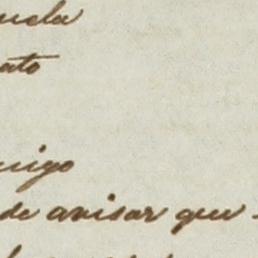 uela
ato
migo
de avisar que